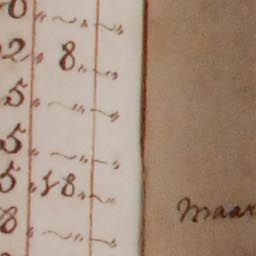 0 „ ~ „ ~ „
2 „ 8 „ ~ „
5 „ ~ „ ~ „
5 „ ~ „ ~ „
5 „ 18 „ ~
8 „ ~ „ ~ „
Maar